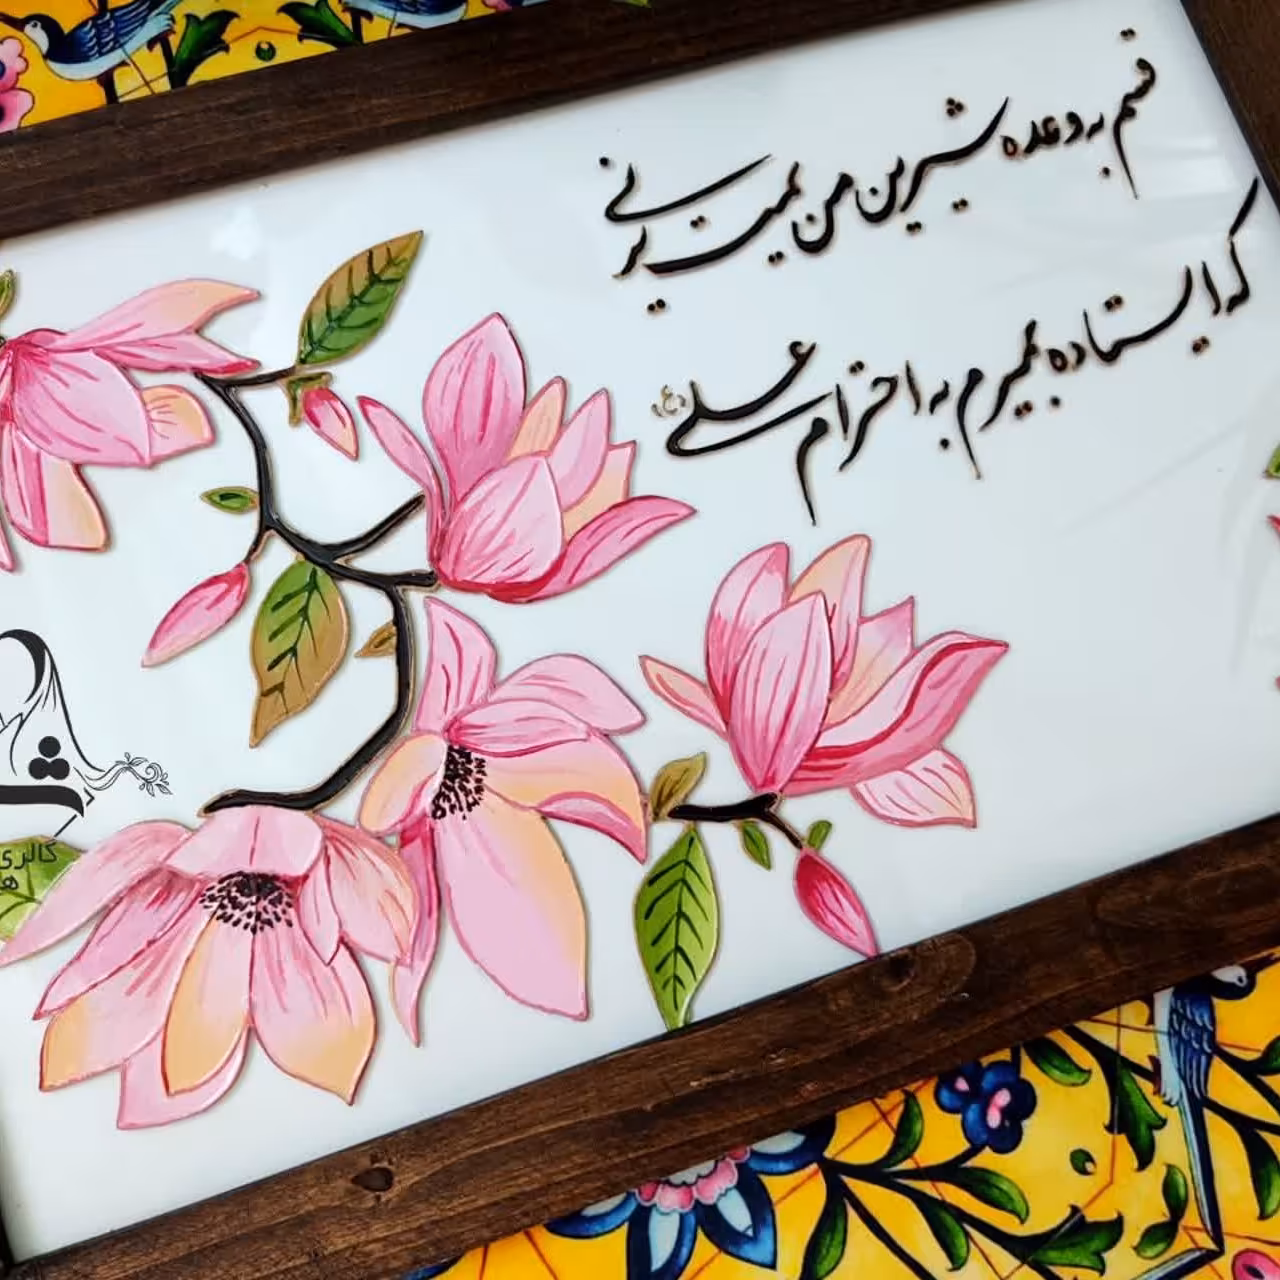 قسم به وعده شیرین من یمت یرنی
که ایستاده بمیرم به احترام علی (ع)
گالری